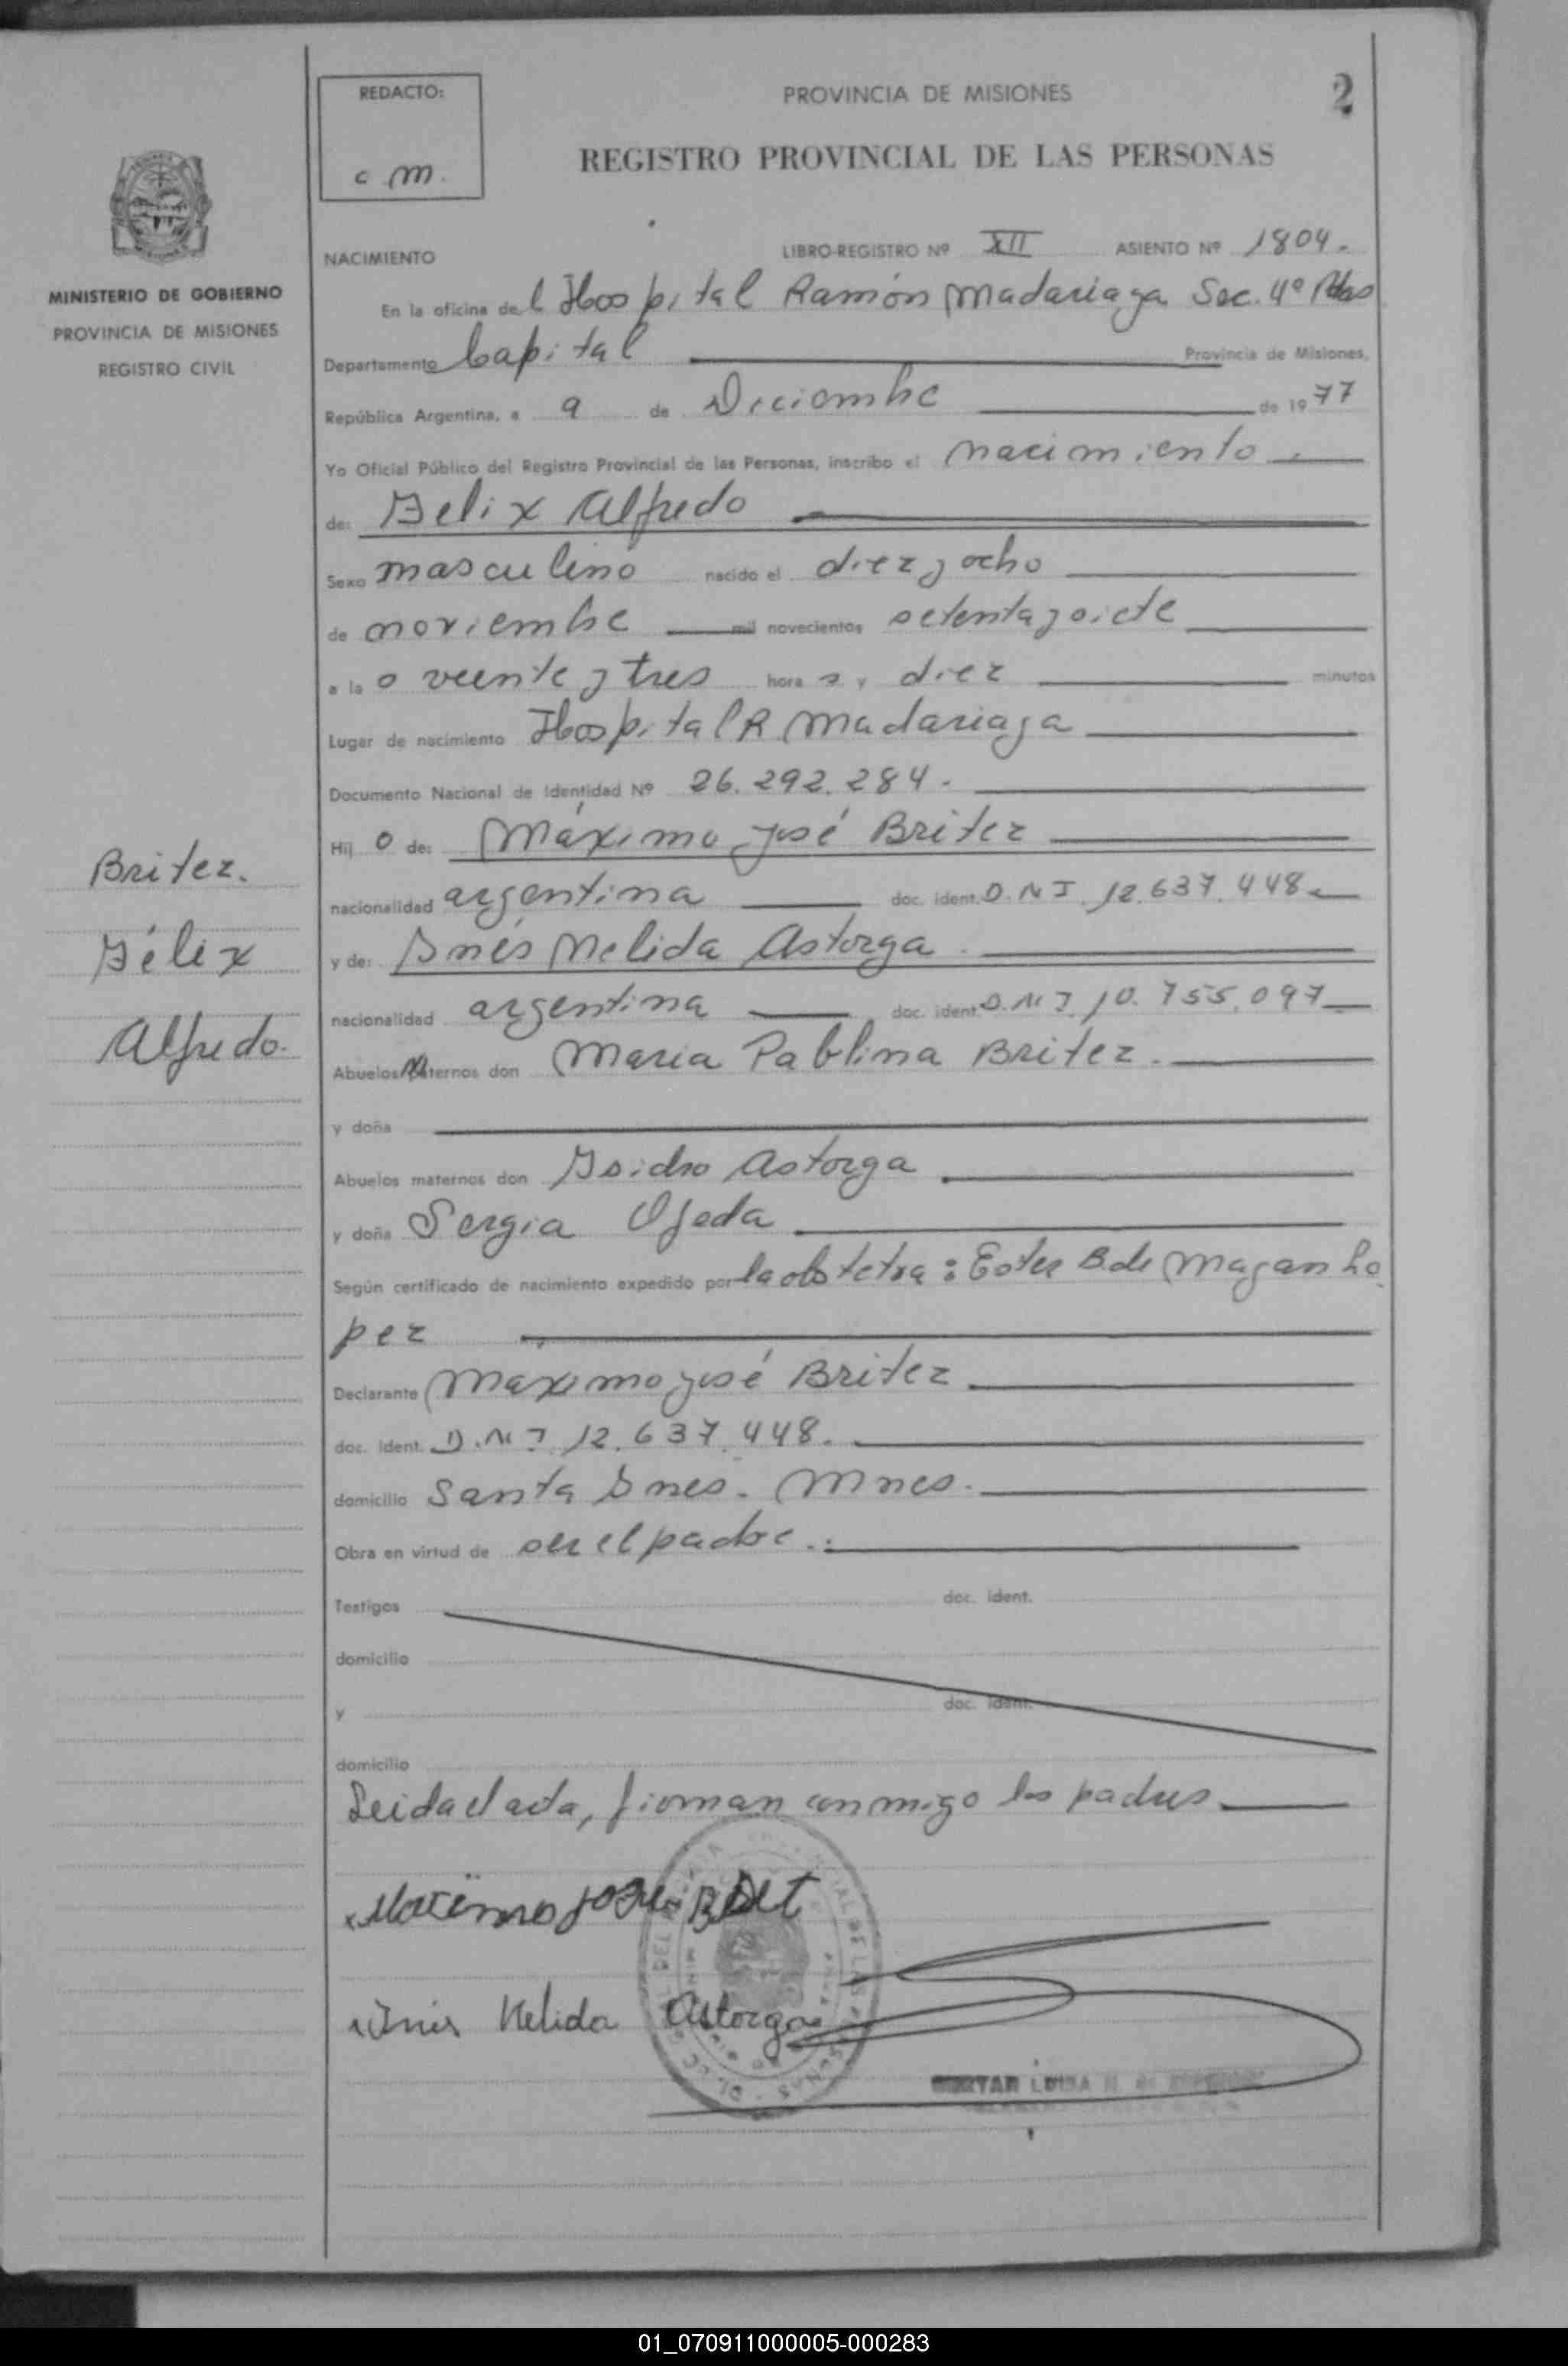 REDACTO:
c m.
PROVINCIA DE MISIONES
2
REGISTRO PROVINCIAL DE LAS PERSONAS
MINISTERIO DE GOBIERNO
PROVINCIA DE MISIONES
REGISTRO CIVIL
Britez.
Félix
Alfredo.
NACIMIENTO LIBRO-REGISTRO Nº XII ASIENTO Nº 1804.
En la oficina del Hospital Ramón Madariaga Sec. 4º Pdas
Departamento Capital Provincia de Misiones,
República Argentina, a 9 de Diciembre de 1977
Yo Oficial Público del Registro Provincial de las Personas, inscribo el nacimiento
de: Felix Alfredo
Sexo masculino nacido el diez y ocho
de noviembre mil novecientos setenta y siete
a las veinte y tres horas y diez minutos
Lugar de nacimiento Hospital R Madariaga
Documento Nacional de Identidad Nº 26.292.284.
Hijo de: Máximo José Britez
nacionalidad argentina doc. ident. D.N.I. 12.637.448
y de: Inés Nelida Astorga
nacionalidad argentina doc. ident. D.N.I. 10.755.097
Abuelos Maternos don Maria Pablina Britez.
y doña
Abuelos maternos don Isidro Astorga
y doña Sergia Ojeda
Según certificado de nacimiento expedido por la obstetra: Ester B. de Magan Lo
pez
Declarante Máximo José Britez
doc. ident. D.N.I. 12.637.448.
domicilio Santa Ines. Mnes.
Obra en virtud de ser el padre.
Testigos doc. ident.
domicilio
y doc. ident.
domicilio
Leida el acta, firman conmigo los padres
Inés Nelida Astorga
LUISA
01_070911000005-000283